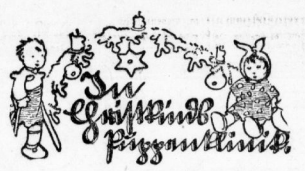 In
Christkinds
Puppenklinik.